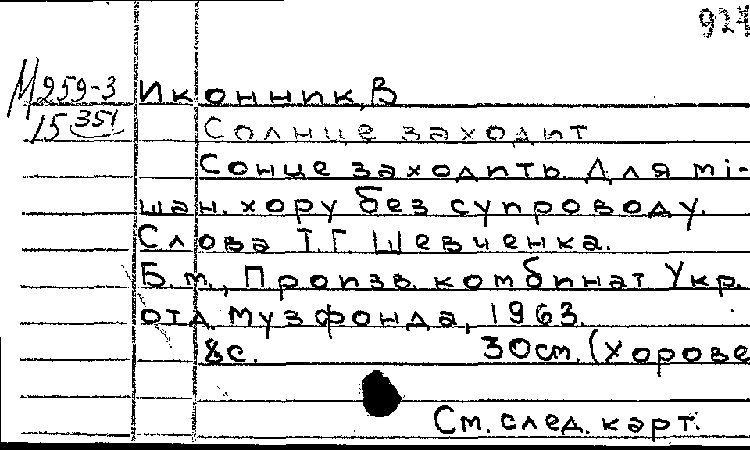 924
М259-3 Иконник, В
15 351 Солнце заходит
Сонце заходить. Для мі-
шан. хору без супроводу.
Слова Т.Г. Шевченка.
Б.м., Произв. комбинат Укр.
отд. Музфонда, 1963.
8с. 30см. (Хорове
См. след. карт.